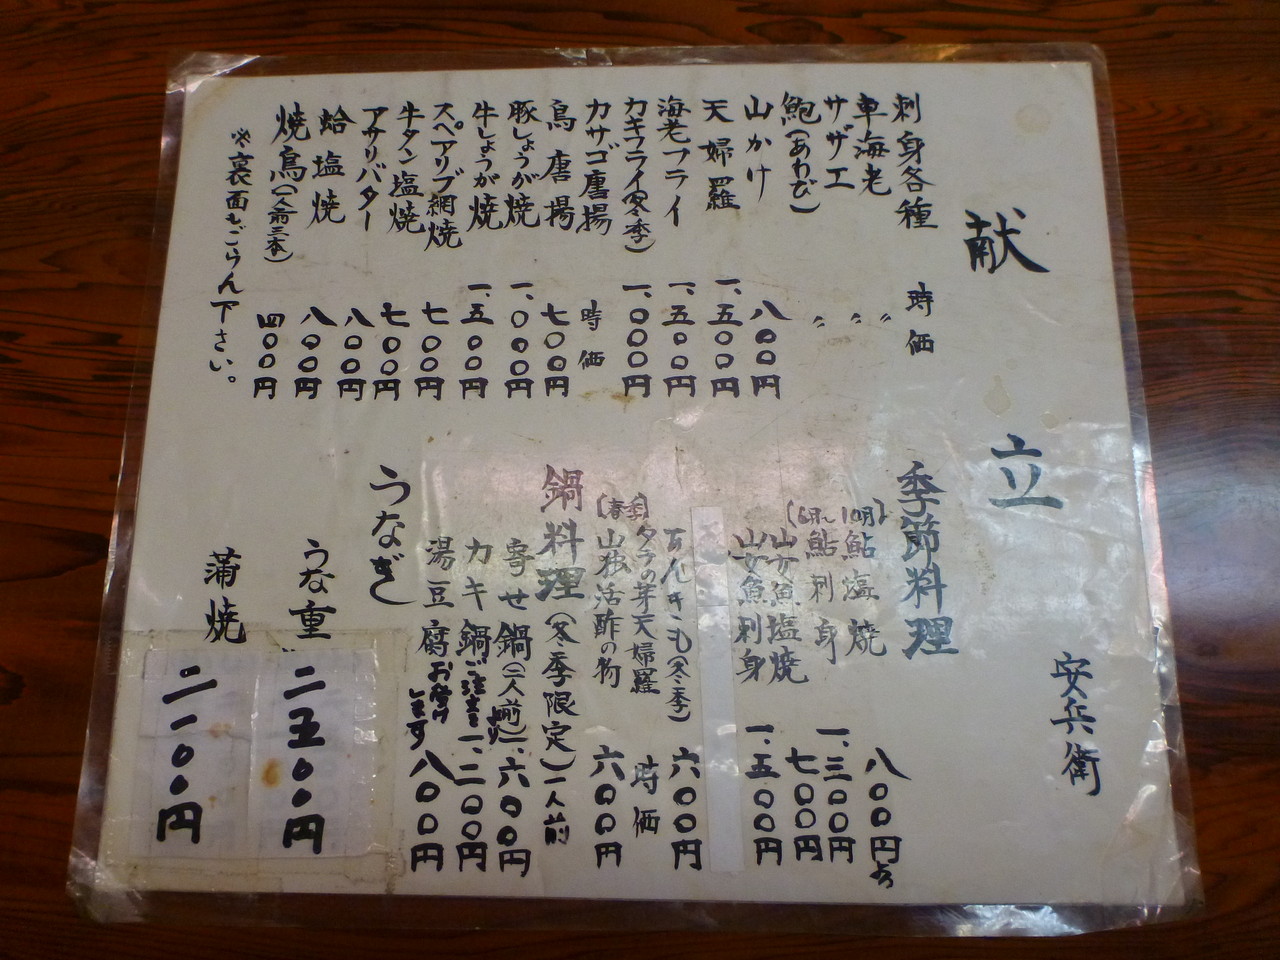 献立
安兵衛
刺身各種 時価
車海老 〃
サザエ 〃
鮑(あわび) 〃
山かけ 八〇〇円
天婦羅 一、五〇〇円
海老フライ 一、五〇〇円
カキフライ(冬季) 一、〇〇〇円
カサゴ唐揚 時価
鳥唐揚 七〇〇円
豚しょうが焼 一、〇〇〇円
牛しょうが焼 一、五〇〇円
スペアリブ網焼 七〇〇円
牛タン塩焼 七〇〇円
アサリバター 八〇〇円
蛤塩焼 八〇〇円
焼鳥(一人前三本) 四〇〇円
※裏面もごらん下さい。
季節料理
(6月〜10月)
鮎塩焼 八〇〇円より
鮎刺身 一、三〇〇円
山女魚塩焼 七〇〇円
山女魚刺身 一、五〇〇円
あんきも(冬季) 六〇〇円
(春季)
タラの芽天婦羅 時価
山独活酢の物 六〇〇円
鍋料理(冬季限定)一人前
寄せ鍋(二人前より) 一、六〇〇円
カキ鍋 一、二〇〇円
湯豆腐 八〇〇円
ご注文をお受けします
うなぎ
うな重 二五〇〇円
蒲焼 二一〇〇円